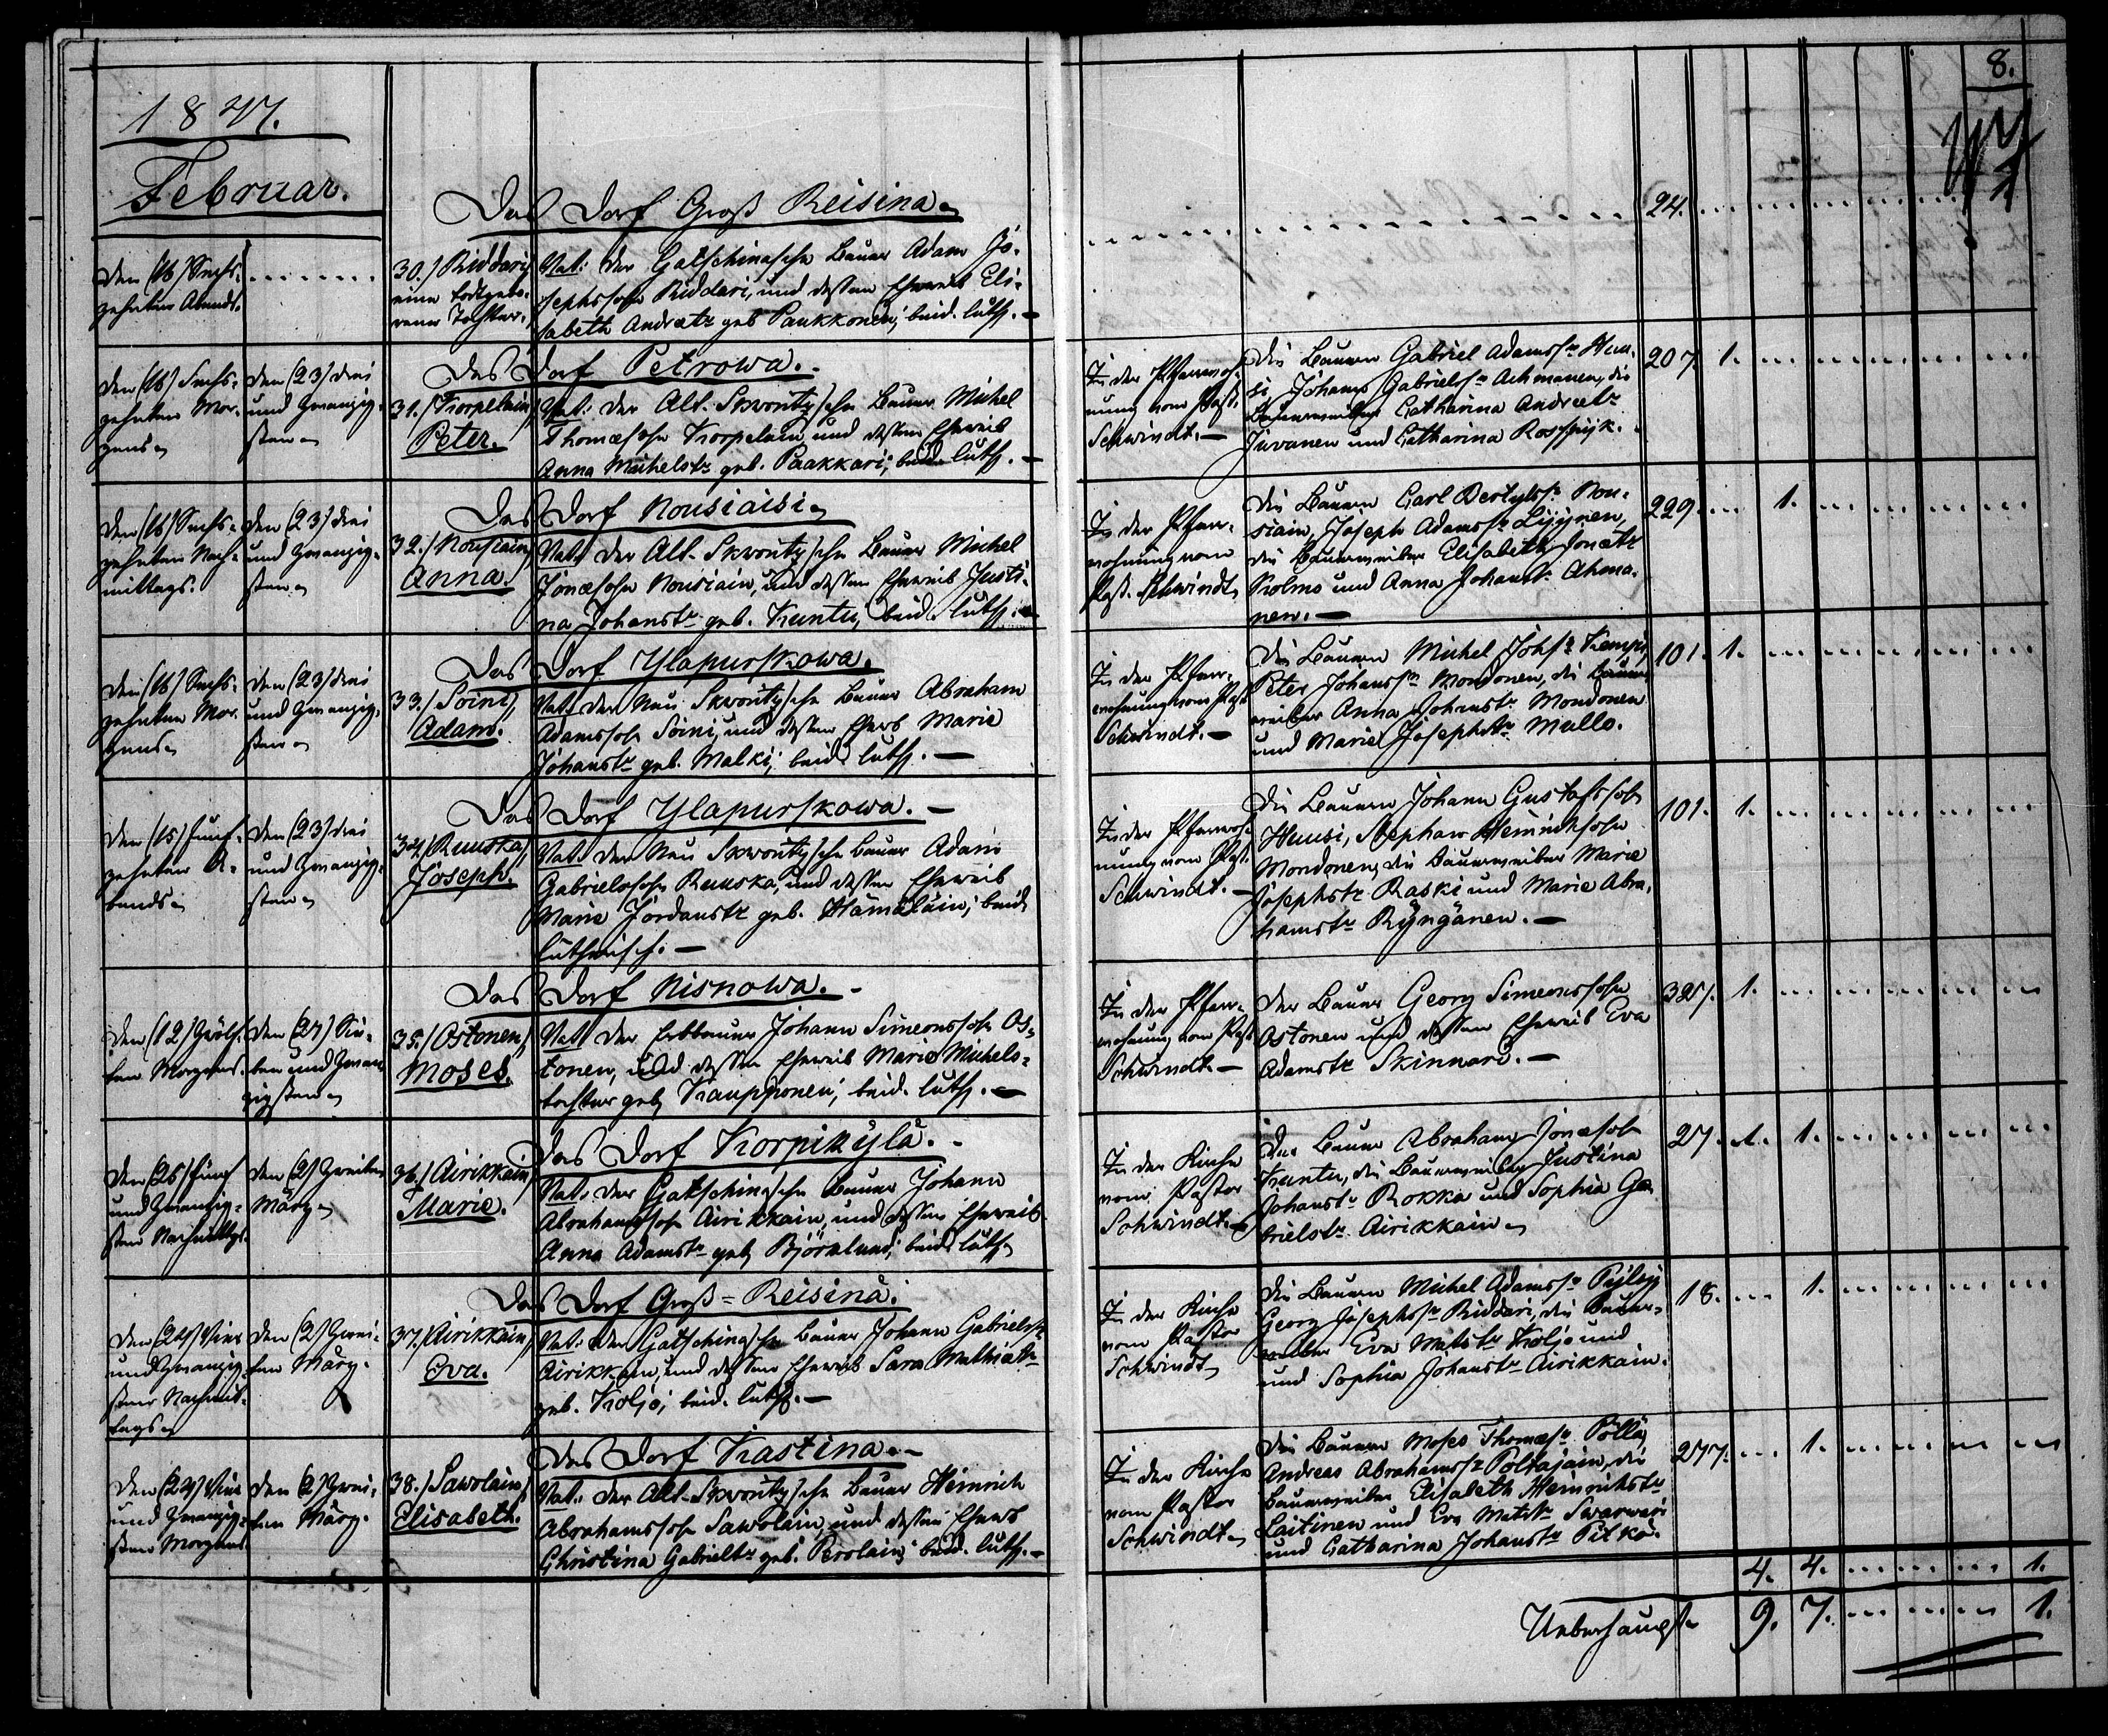 8.
1847.
Februar.
Das Dorf Groß Reisina
24.
den (16) Sechs-
zehnten Abends.
30./ Riddari,
eine todtgebo-
rene Tochter.
Vat: der Gatschinasche Bauer Adam Jo-
sephssohn Riddari, und dessen Eheweib Eli-
sabeth Andreastr geb. Paukkonen; beid. luth. —
Das Dorf Petrowa.
den (16) Sechs-
zehnten Mor-
gens
den (23) drei
und zwanzig-
sten
31./ Korpelain,
Peter.
Vat: der Alt-Skworitzsche Bauer Michel
Thomassohn Korpelain und dessen Eheweib
Anna Michelstr geb. Paakkari; beid. luth. —
In der Pfarrwoh-
nung vom Past.
Schwindt. —
Die Bauern Gabriel Adamss. Huu-
si, Johann Gabrielss. Achmanen, die
Bauerweiber Catharina Andreastr
Juvanen und Catharina
207. 1.
Das Dorf Nousiaisi
den (16) Sechs-
zehnten Nach-
mittags.
den (23) drei
und zwanzig-
sten
32./ Nousiain,
Anna.
Vat: der Alt-Skworitzsche Bauer Michel
Jonassohn Nousiain, und dessen Eheweib Justi-
na Johanstr geb. Kuntu; beid. luth. —
In der Pfarr-
wohnung vom
Past. Schwindt
Die Bauern Carl Bertylss. Nou-
siain, Joseph Adamss.
die Bauerweiber Elisabeth Jonastr
Kolmo und Anna Johanstr Ahma-
nen. —
229. 1.
Das Dorf Ylapurskowa.
den (16) Sechs-
zehnten Mor-
gens
den (23) drei
und zwanzig-
sten
33./ Soini,
Adam.
Vat: der Neu Skworitzsche Bauer Abraham
Adamssohn Soini, und dessen Ehew. Marie
Johanstr geb. Malki; beide luth. —
In der Pfarr-
wohnung vom Past.
Schwindt. —
Die Bauern Michel Johss. Kemppi,
Peter Johanss. Mondonen, die Bauer-
weiber Anna Johanstr Mondonen
und Marie Josephstr Mullo.
101. 1.
Das Dorf Ylapurskowa. —
den (15) fünf-
zehnten A-
bends
den (23) drei
und zwanzig-
sten
34./ Ruuska,
Joseph.
Vat: der Neu Skworitzsche Bauer Adam
Gabrielssohn Ruuska, und dessen Eheweib
Marie Jordanstr geb. Hämäläin; beide
lutherisch. —
In der Pfarrwoh-
nung vom Past.
Schwindt. —
Die Bauern Johann Gustafssohn
Huusi, Stephan Heinrichsohn
Mondonen, die Bauerweiber Marie
Josephstr Raski und Marie Abra-
hamstr Ryngänen. —
101. 1.
Das Dorf Nisnowa. —
den (12) zwölf-
ten Morgens.
den (27) Sie-
ben und zwan-
zigsten
35./ Ostonen,
Moses.
Vat: der Erbbauer Johann Simeonssohn Os-
tonen, und dessen Eheweib Marie Michels-
tochter geb. Kaupponen; beid. luth. —
In der Pfarr-
wohnung vom Past.
Schwindt —
Der Bauer Georg Simeonssohn
Ostonen und dessen Eheweib Eva
Adamstr Skinnari. —
1.
Das Dorf Korpikylä. —
den (25) fünf
und zwanzig-
sten Nachmittgs.
den (2) zweiten
März
36./ Airikkain,
Marie.
Vat: der Gatschinasche Bauer Johann
Abrahamssohn Airikkain, und dessen Eheweib
Anna Adamstr geb. Björklund; beide luth
In der Kirche
vom Pastor
Schwindt.
Der Bauer Abraham Jonassohn
Kuntu, die Bauerweiber Justina
Johanstr Rokka und Sophia Ga-
brielstr Airikkain
27. 1.
Das Dorf Groß-Reisina.
den (24) Vier
und zwanzig-
sten Nachmit-
tags
den (2) zwei-
ten März.
37./ Airikkain,
Eva.
Vat: der Gatschinasche Bauer Johann Gabrielss.
Airikkain, und dessen Eheweib Sara Mathiastr
geb. Koljo; beid. luth. —
In der Kirche
vom Pastor
Schwindt
Die Bauern Michel Adamss.
Georg Josephss. Riddari, die Bauer-
weiber Eva Matstr Koljo und
und Sophia Johanstr Airikkain.
18. 1.
Das Dorf Kastina. —
den (24) Vier
und zwanzig-
sten Morgens
den (2) zwei-
ten März.
38./ Sawolain,
Elisabeth.
Vat: der Alt-Skworitzsche Bauer Heinrich
Abrahamssohn Sawolain, und dessen Ehew.
Christina Gabrieltr geb. Perolain; beid. luth. —
In der Kirche
vom Pastor
Schwindt
Die Bauern Moses Thomass. Pöllä,
Andreas Abrahamss. Poltajain, die
Bauerweiber Elisabeth Heinrichstr
Laitinen und Eva Matstr
und Catharina Johanstr Pitkä.
277. 1.
4. 4. 1.
Ueberhaupt 9. 7. 1.